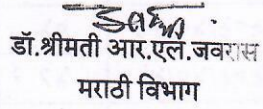 डॉ.श्रीमती आर.एल.जवरास
मराठी विभाग